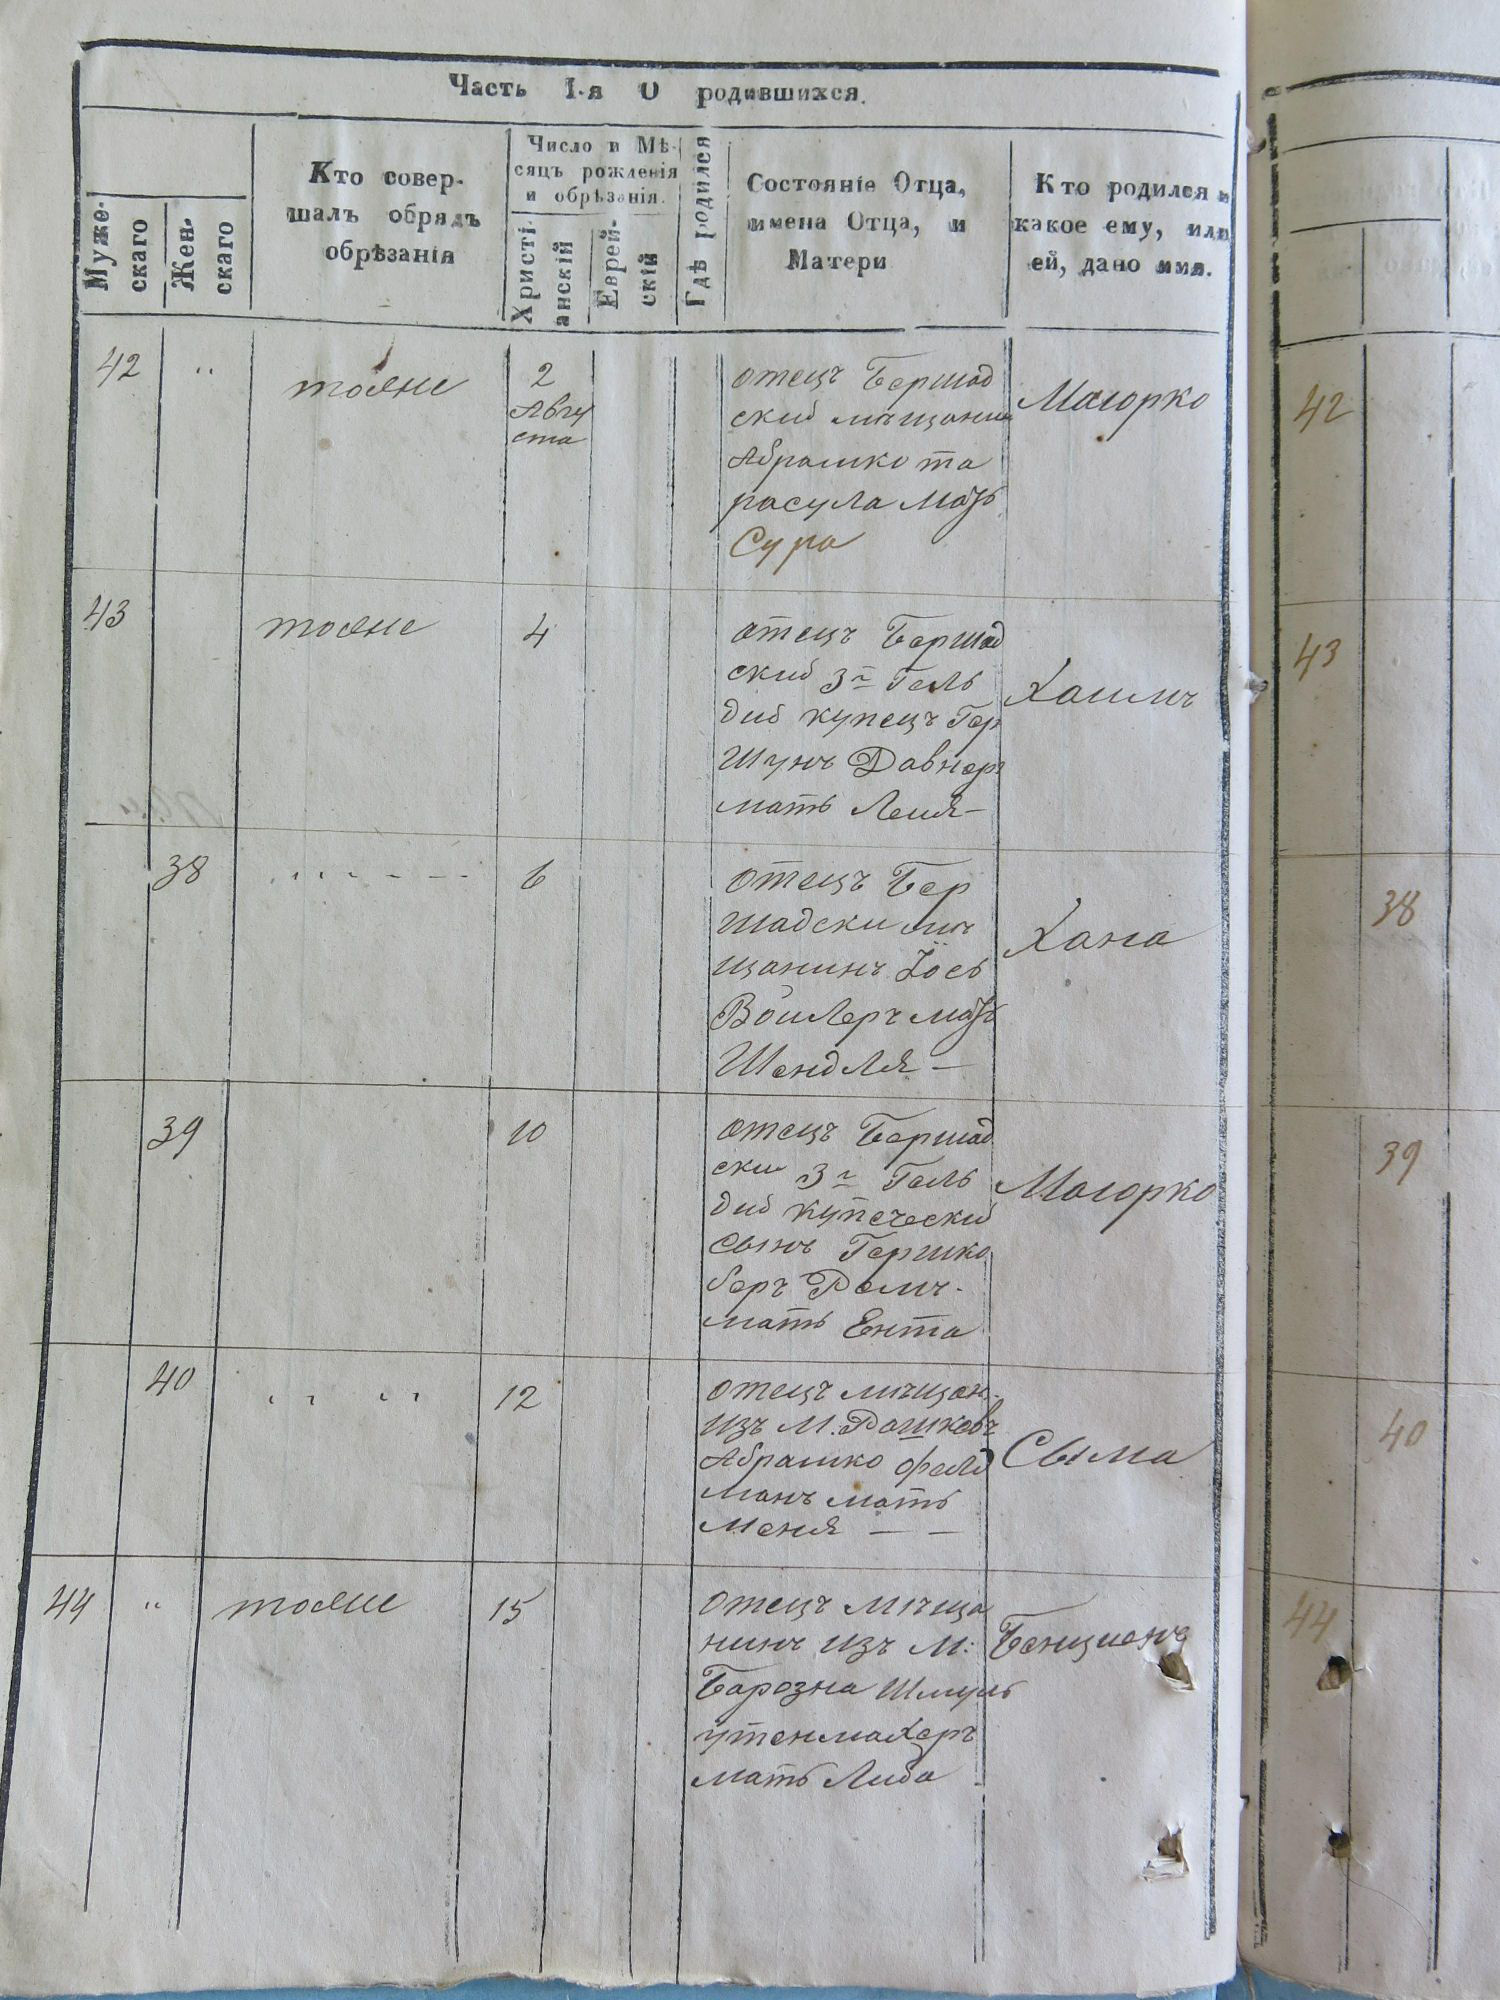 Часть I-я О родившихся.
Муже-
скаго
Жен-
скаго
Кто совер-
шалъ обрядъ
обрѣзанія
Число и Мѣ-
сяцъ рожденія
и обрѣзанія.
Христі-
анскій
Еврей-
скій
Гдѣ родился
Состояніе Отца,
имена Отца, и
Матери
Кто родился и
какое ему, или
ей, дано имя.
42 " 2
Авгу
ста
отецъ Бершад
ский мѣщанин
Абрамко та
расула мать
Сура
Маиорко
43 4
отецъ Бершад
ский 3й Гель
дий купецъ Гер
шунъ
мать Лея
Хаимъ
38 6
отецъ Бер
шадски мѣ
щанинъ Іось
мать
Шендля
Хана
39 10
отецъ Бершад
ски 3й Гель
дий купечески
сынъ Гершко
беръ
мать Ента
Маиорко
40 " " 12
отецъ мѣщан.
изъ М. Рашковъ
Абрамко фелд
манъ мать
меня
Сыма
44 " 15
отецъ мѣща
нинъ изъ М:
Шмуль
утенмахеръ
мать Либа
Бенционъ
42
43
38
39
40
44